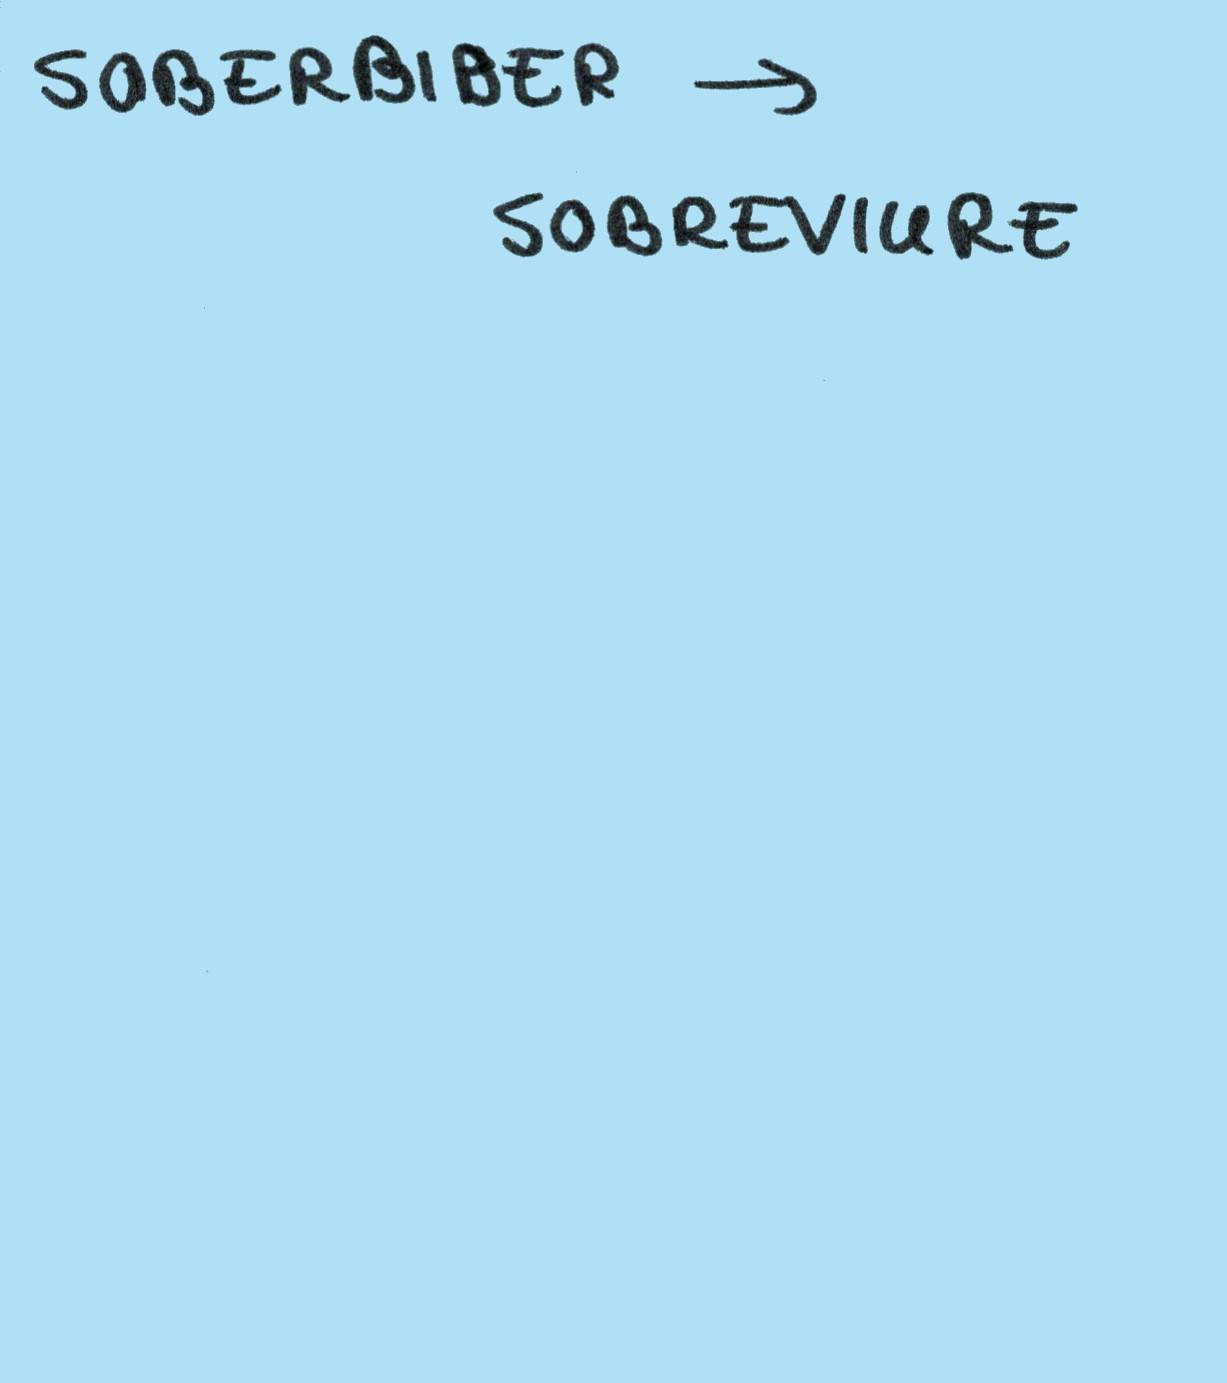 SOBERBIBER →
SOBREVIURE